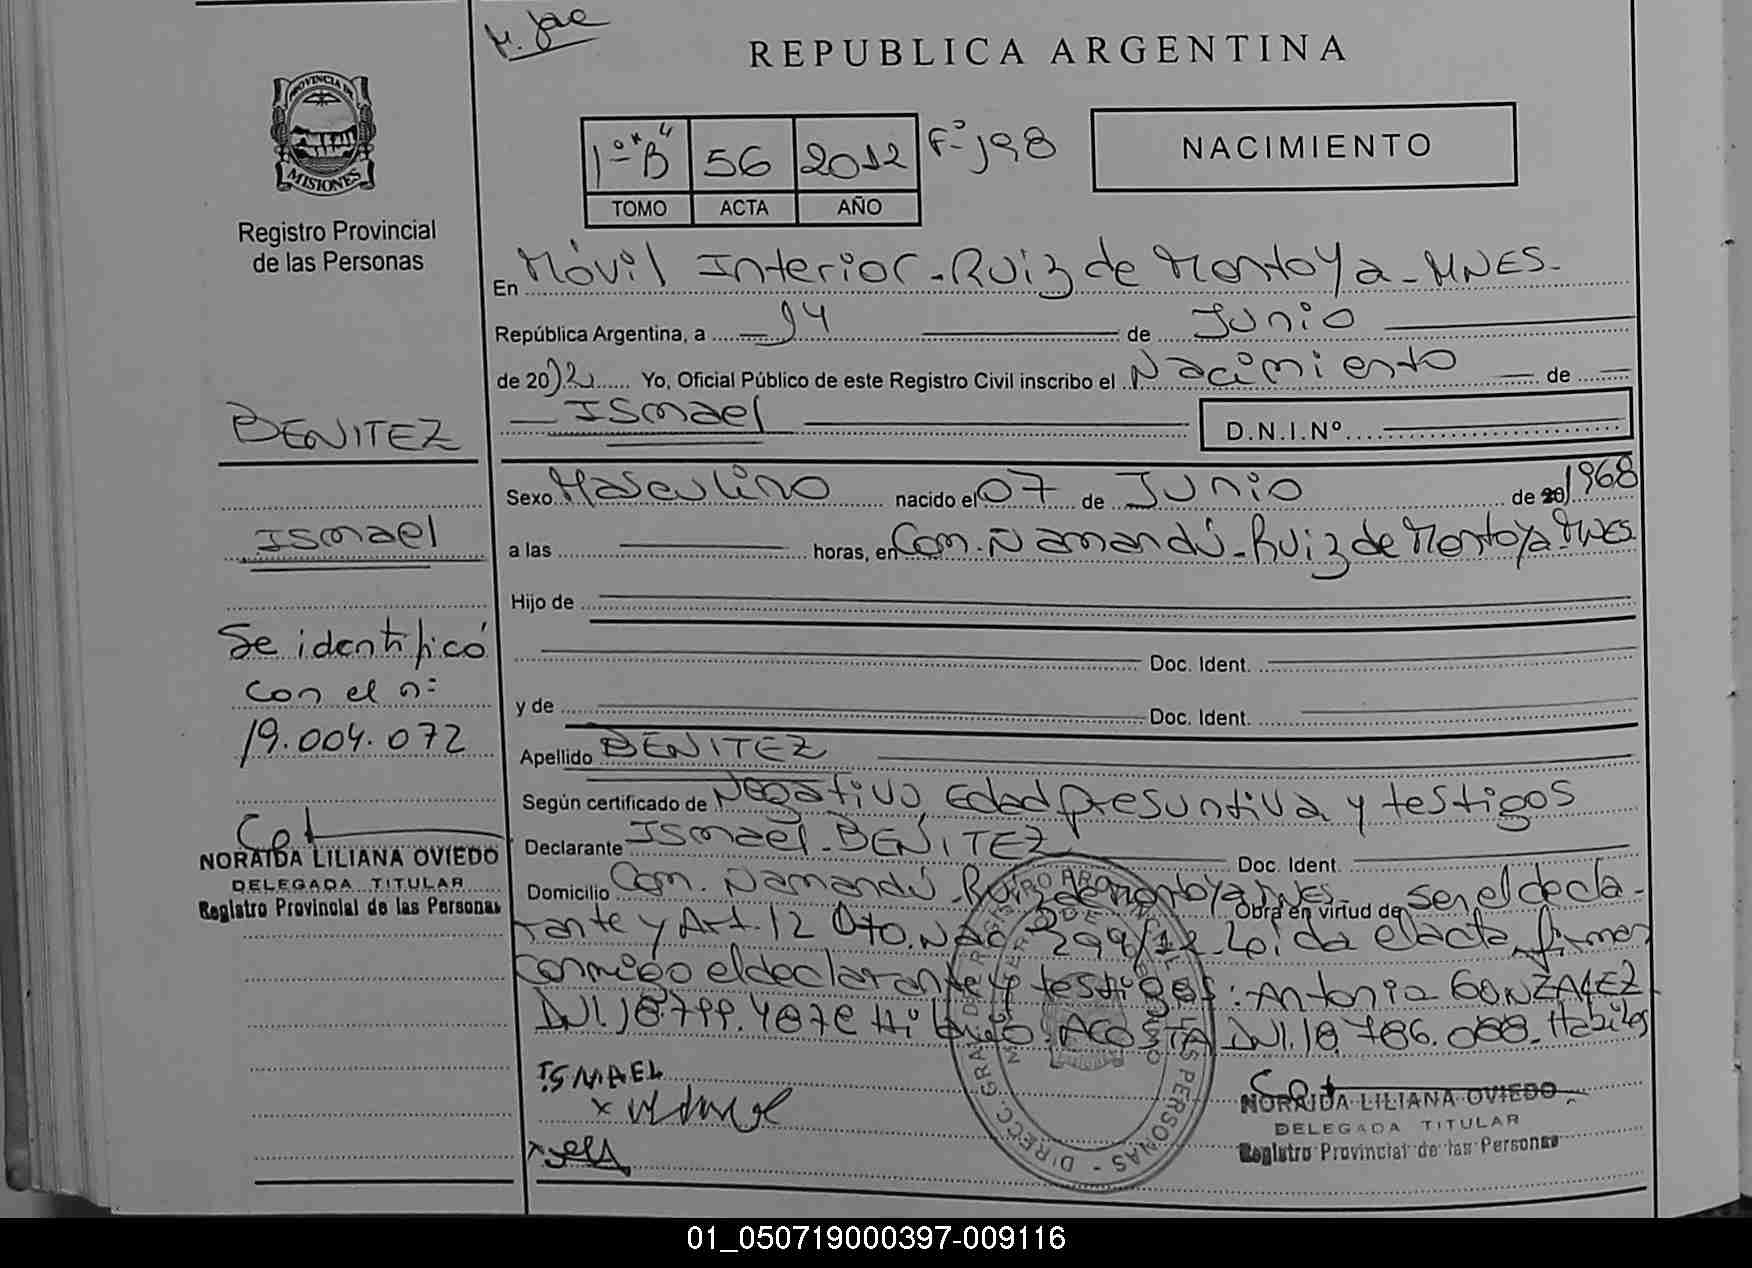 REPUBLICA ARGENTINA
PROVINCIA DE
MISIONES
Registro Provincial
de las Personas
1º "B" 56 2012 Fº 198
TOMO ACTA AÑO
NACIMIENTO
En Móvil Interior - Ruiz de Montoya - MNES -
República Argentina, a 14 de Junio
de 2012 Yo, Oficial Público de este Registro Civil inscribo el Nacimiento de
Ismael
D.N.I.Nº
BENITEZ
Ismael
Se identificó
con el nº
19.004.072
NORAIDA LILIANA OVIEDO
DELEGADA TITULAR
Registro Provincial de las Personas
Sexo Masculino nacido el 07 de Junio de 20 1968
a las horas, en Com. Ñamandú - Ruiz de Montoya - MNES.
Hijo de
Doc. Ident.
y de Doc. Ident.
Apellido BENITEZ
Según certificado de Negativo, Edad presuntiva y testigos
Declarante Ismael BENITEZ Doc. Ident.
Domicilio Com. Ñamandú - Ruiz de Montoya MNES - Obra en virtud de ser el decla-
rante y Art. 12 Dto. Nac. 299/12 - Leída el acta, firman
conmigo el declarante y testigos: Antonia GONZALEZ
DNI. 18.799.487 e Hilario ACOSTA DNI. 18.786.088. Habiles
ISMAEL
NORAIDA LILIANA OVIEDO
DELEGADA TITULAR
Registro Provincial de las Personas
01_050719000397-009116